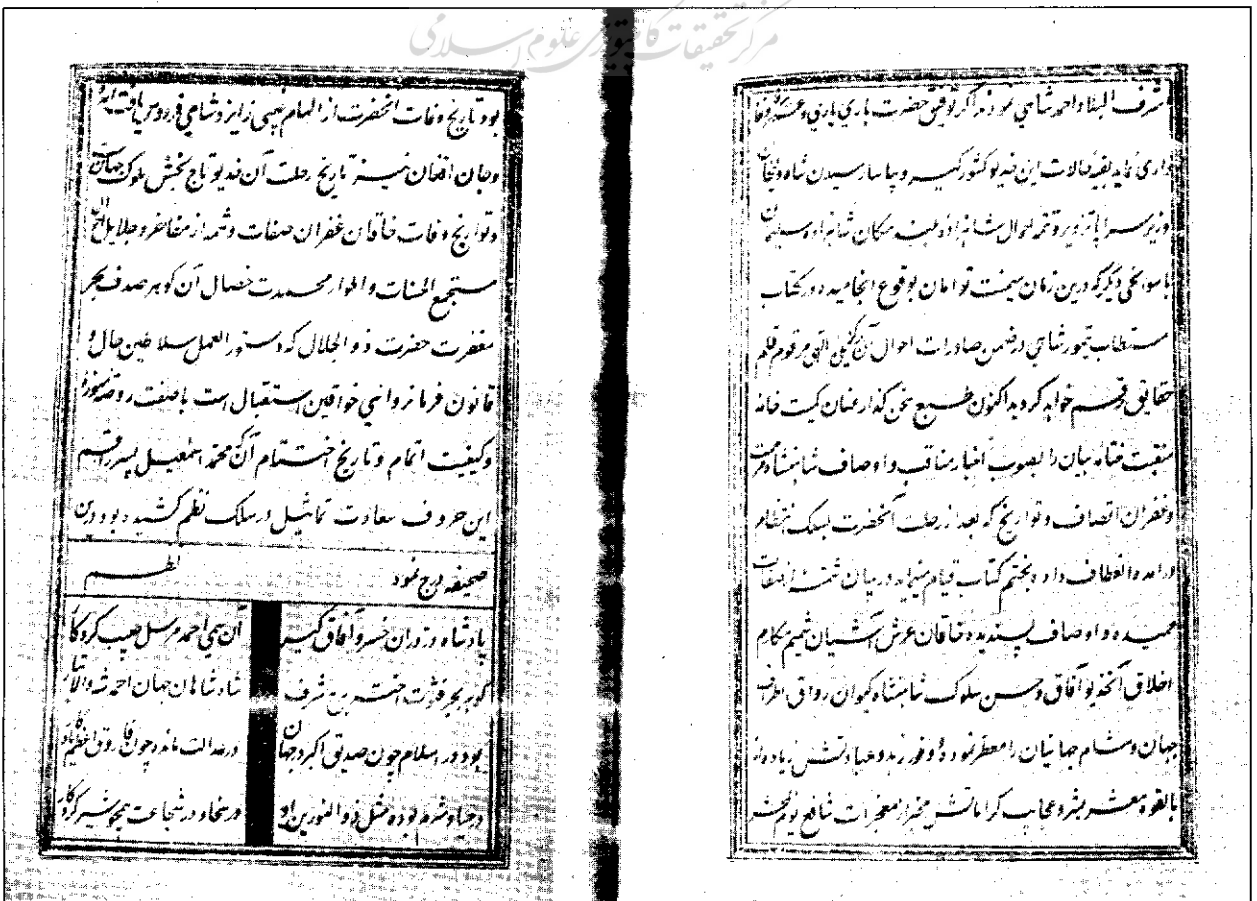 مرکز تحقیقات کامپیوتری علوم اسلامی
اشرف البلاد احمد شاهی نمود نه اگر توفیق حضرت باری یاری و عمر وفا
داری نماید بقیه حالات این خدیو کشورگیر و بپاسا رسیدن شاه ولیخان
وزیر سراپا تزویر و تتمه احوال شاهزاده بلند مکان شاهزاده سلیمان
با سوانحی دیگر که درین زمان میمنت توامان بوقوع انجامیده در کتاب
مستطاب تیمور شاهی در ضمن صادرات احوال آن مرقوم قلم
حقایق رقم خواهد گردید اکنون طبع سخن گذار عنان کمیت خامه
منقبت ختامه بیان را بصوب اخبار مناقب و اوصاف شاهنشاه
و غفران اتصاف و تواریخ که بعد از رحلت آنحضرت بسلک انتظام
درآمده انعطاف داده بختم کتاب قیام مینماید در بیان شمه از صفات
حمیده و اوصاف پسندیده خاقان عرش آشیان شمیم مکارم
اخلاق آنخدیو آفاق و حسن سلوک شاهنشاه کیوان رواق اطراف
جهان و مشام جهانیان را معطر نموده وفور زهد و عباداتش زیاده از
بالقوه معشر بشر و عجایب کراماتش مخبر از معجزات شافع یوم محشر
بود تاریخ وفات آنحضرت از الهام غیبی زایزد شاهی فردوس یافت
و جان افغان نیز تاریخ رحلت آن خدیو تاج بخش ملوک جهان
و تواریخ وفات خاقان غفران صفات و شمه از مفاخر و جلایل
مستجمع الحسنات و اطوار محمدت خصال آن گوهر صدف بحر
مغفرت حضرت ذو الجلال که دستور العمل سلاطین حال و
قانون فرمانروایی خواقین استقبال است با صفت روضه منوره
و کیفیت اتمام و تاریخ اختتام آن محمد اسمعیل پسر راقم
این حروف سعادت تماثیل در سلک نظم کشیده بود درین
صحیفه درج نمود نظم
پادشاه دُر دوران خسرو آفاق گیر آن سمی احمد مرسل حبیب کردگار
گوهر بحر فتوت اختر برج شرف شاه شاهان جهان احمد شه والاتبار
بود در اسلام چون صدیق اکبر در جهان در عدالت مانده چون فاروق اعظم
در حیا و شرم بوده مثل ذو النورین او در سخا و در شجاعت همچو شیر کردگار